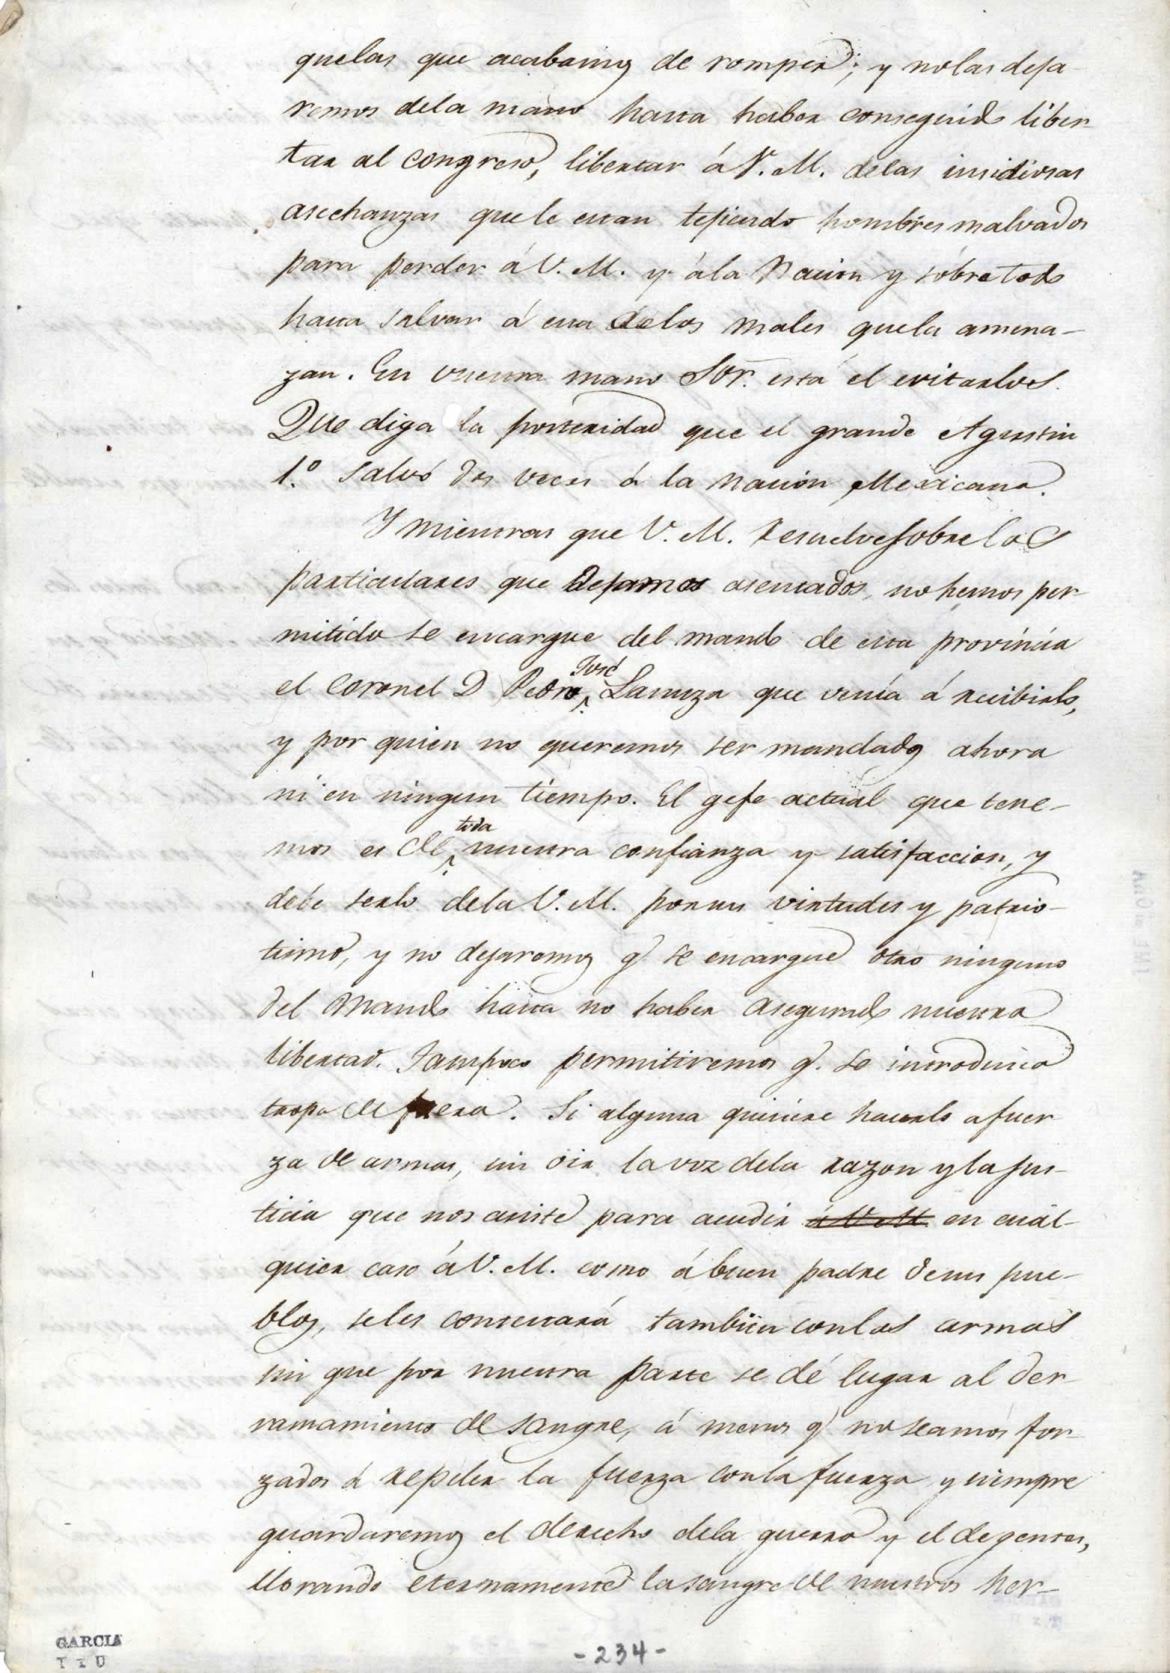 quelas que acabamos de romper; y nolas deja-
remos dela mano hasta haber conseguido liber-
tar al congreso, libertar á V. M. delas insidiosas
asechanzas que le estan tejiendo hombres malvados
para perder á V. M. y ála Nacion y sobre todo
hasta salvar á esta delos males quela amena-
zan. En vuestra mano Sor. está el evitarlos.
Que diga la posteridad que el grande Agustin
1.º salvó dos veces á la nacion Mexicana.
Y mientras que V. M. resuelve sobre los
particulares que dejamos asentados, no hemos per-
mitido se encargue del mando de esta provincia
el coronel D Pedro José Lanuza que venía á recibirlo,
y por quien no queremos ser mandados ahora
ni en ningun tiempo. El gefe actual que tene-
mos es de toda nuestra confianza y satisfaccion, y
debe serlo dela V. M. porsus virtudes y patrio-
tismo, y no dejaremos q. se encargue otro ninguno
del mando hasta no haber asegurado nuestra
libertad. Tampoco permitiremos q. se introduzca
tropa de fuera. Si alguna quisiere hacerlo a fuer
za de armas, sin oir la voz dela razon y la jus-
ticia que nos asiste para acudir á V. M. en cuál-
quier caso á V. M. como á buen padre desus pue-
blos, seles contestará tambien con las armas
sin que por nuestra parte se dé lugar al der-
ramamiento de sangre, á menos q. no seamos for-
zados á repeler la fuerza con la fuerza y siempre
guardaremos el derecho dela guerra y el de gentes,
llorando eternamente la sangre de nuestros her-
GARCIA
- 234 -